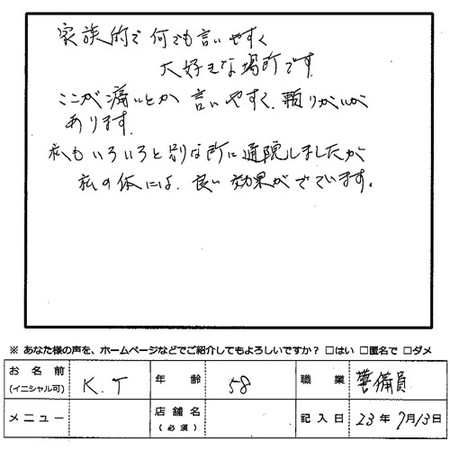 家族的で何でも言いやすく
大好きな場所です。
ここが痛いとか言いやすく、頼りがいが
あります。
私もいろいろと別な所に通院しましたが
私の体には、良い効果がでています。
※ あなた様の声を、ホームページなどでご紹介してもよろしいですか？ □はい □匿名で □ダメ
お名前 (イニシャル可) K.T 年齢 58 職業 警備員
メニュー 店舗名 (必須) 記入日 23年7月13日